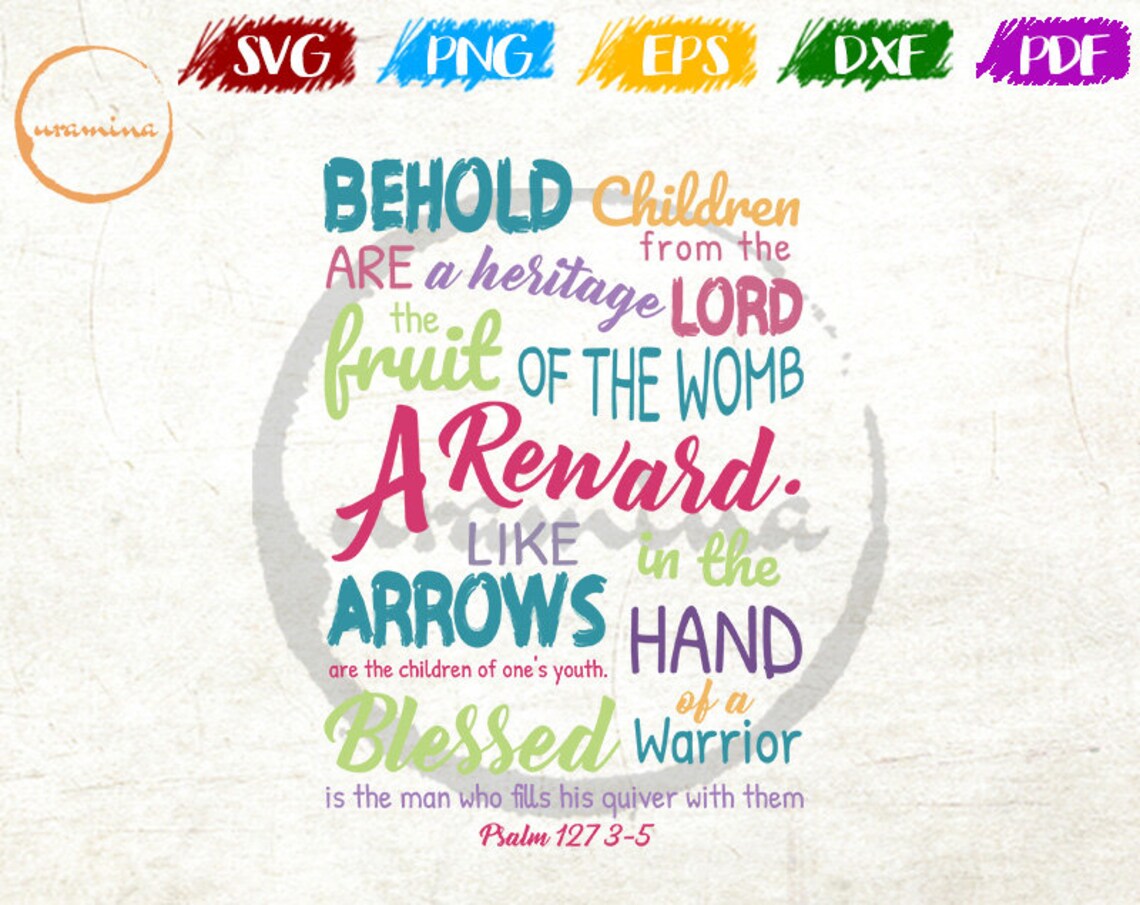 SVG PNG EPS DXF PDF
uramina
BEHOLD Children
ARE a heritage from the
LORD
the
fruit OF THE WOMB
A Reward.
LIKE
ARROWS in the
HAND
are the children of one's youth.
of a
Warrior
Blessed
is the man who fills his quiver with them
Psalm 127 3-5
uramina